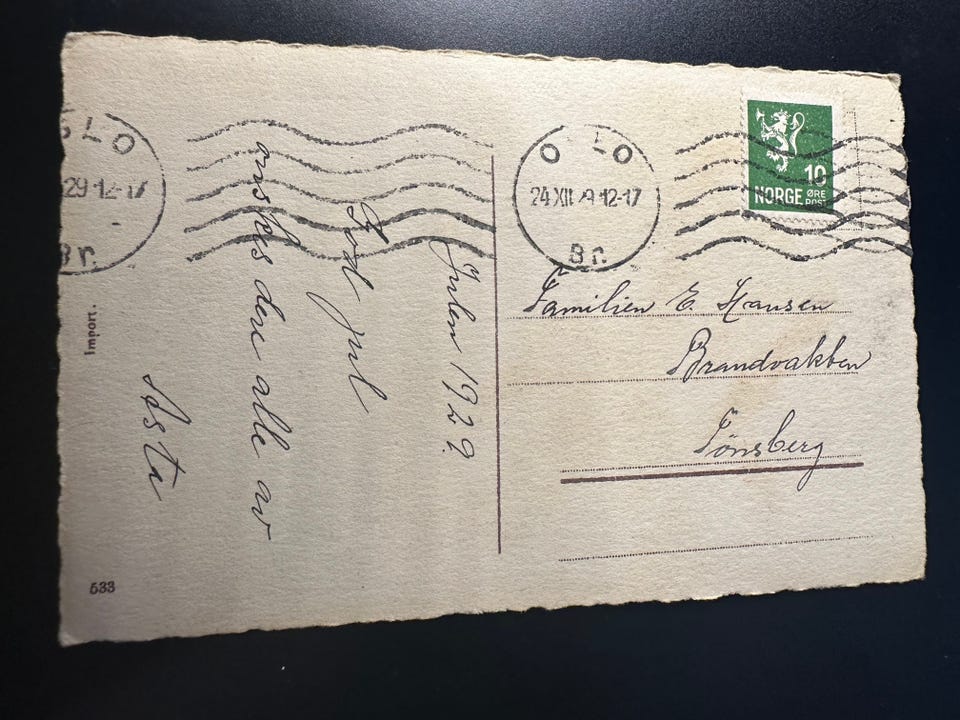 OSLO
29 12-17
Br.
OSLO
24 XII 29 12-17
Br.
NORGE
10
ØRE
POST
Julen 1929.
God jul
ønskes dere alle av
Asta
Familien E. Hansen
Brandvakten
Tønsberg
Import.
533